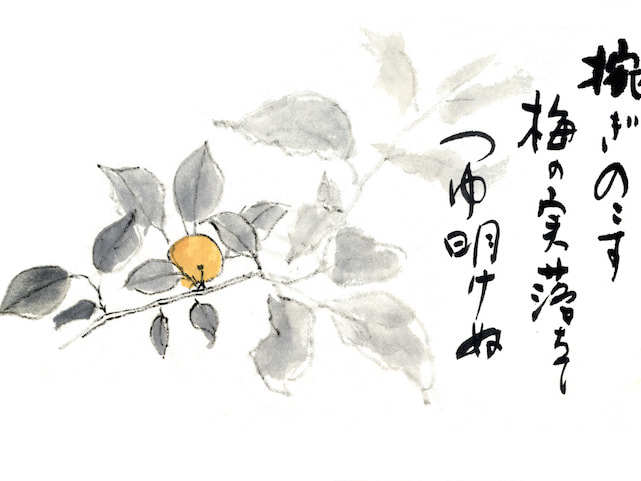 捥ぎのこす
梅の実落ちて
つゆ明けぬ